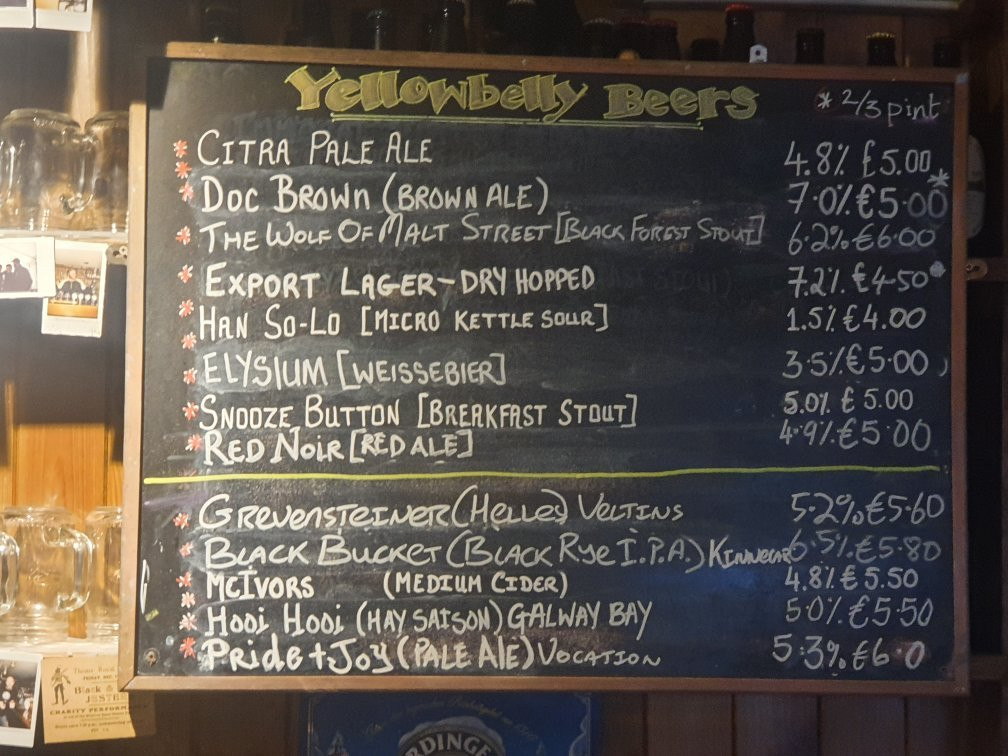 Yellowbelly Beers
* 2/3 pint
* CITRA PALE ALE 4.8% £5.00
* DOC BROWN (BROWN ALE) 7.0% €5.00 *
* THE WOLF OF MALT STREET [BLACK FOREST STOUT] 6.2% €6.00
* EXPORT LAGER-DRY HOPPED 7.2% €4.50 *
* HAN SO-LO [MICRO KETTLE SOUR] 1.5% €4.00
* ELYSIUM [WEISSEBIER] 3.5% €5.00
* SNOOZE BUTTON [BREAKFAST STOUT] 5.0% £5.00
* RED NOIR [RED ALE] 4.9% €5.00
* GREVENSTEINER (HELLES) VELTINS 5.2% €5.60
* BLACK BUCKET (BLACK RYE I.P.A.) KINNEGAR 6.5% €5.80
* MCIVORS (MEDIUM CIDER) 4.8% €5.50
* HOOI HOOI (HAY SAISON) GALWAY BAY 5.0% €5.50
* Pride + Joy (PALE AlE) VOCATION 5.3% €6 0
Black &
JESTER
CHARITY PERFORM
RDINGE